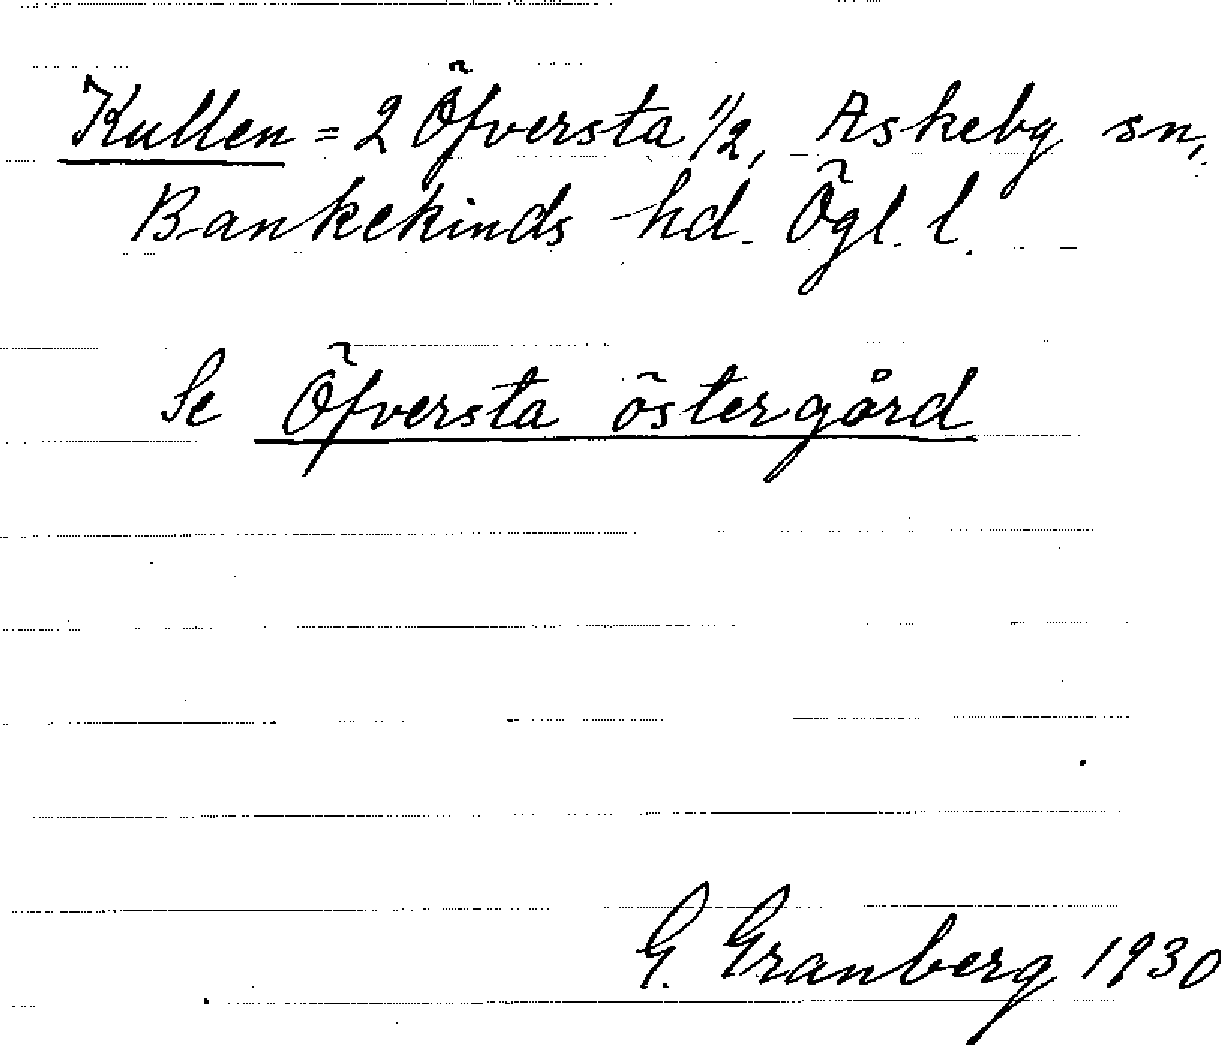 Kullen = 2 Öfversta 1/2, Askeby sn,
Bankekinds hd. Ögl. l.
Se Öfversta östergård
G. Granberg 1930